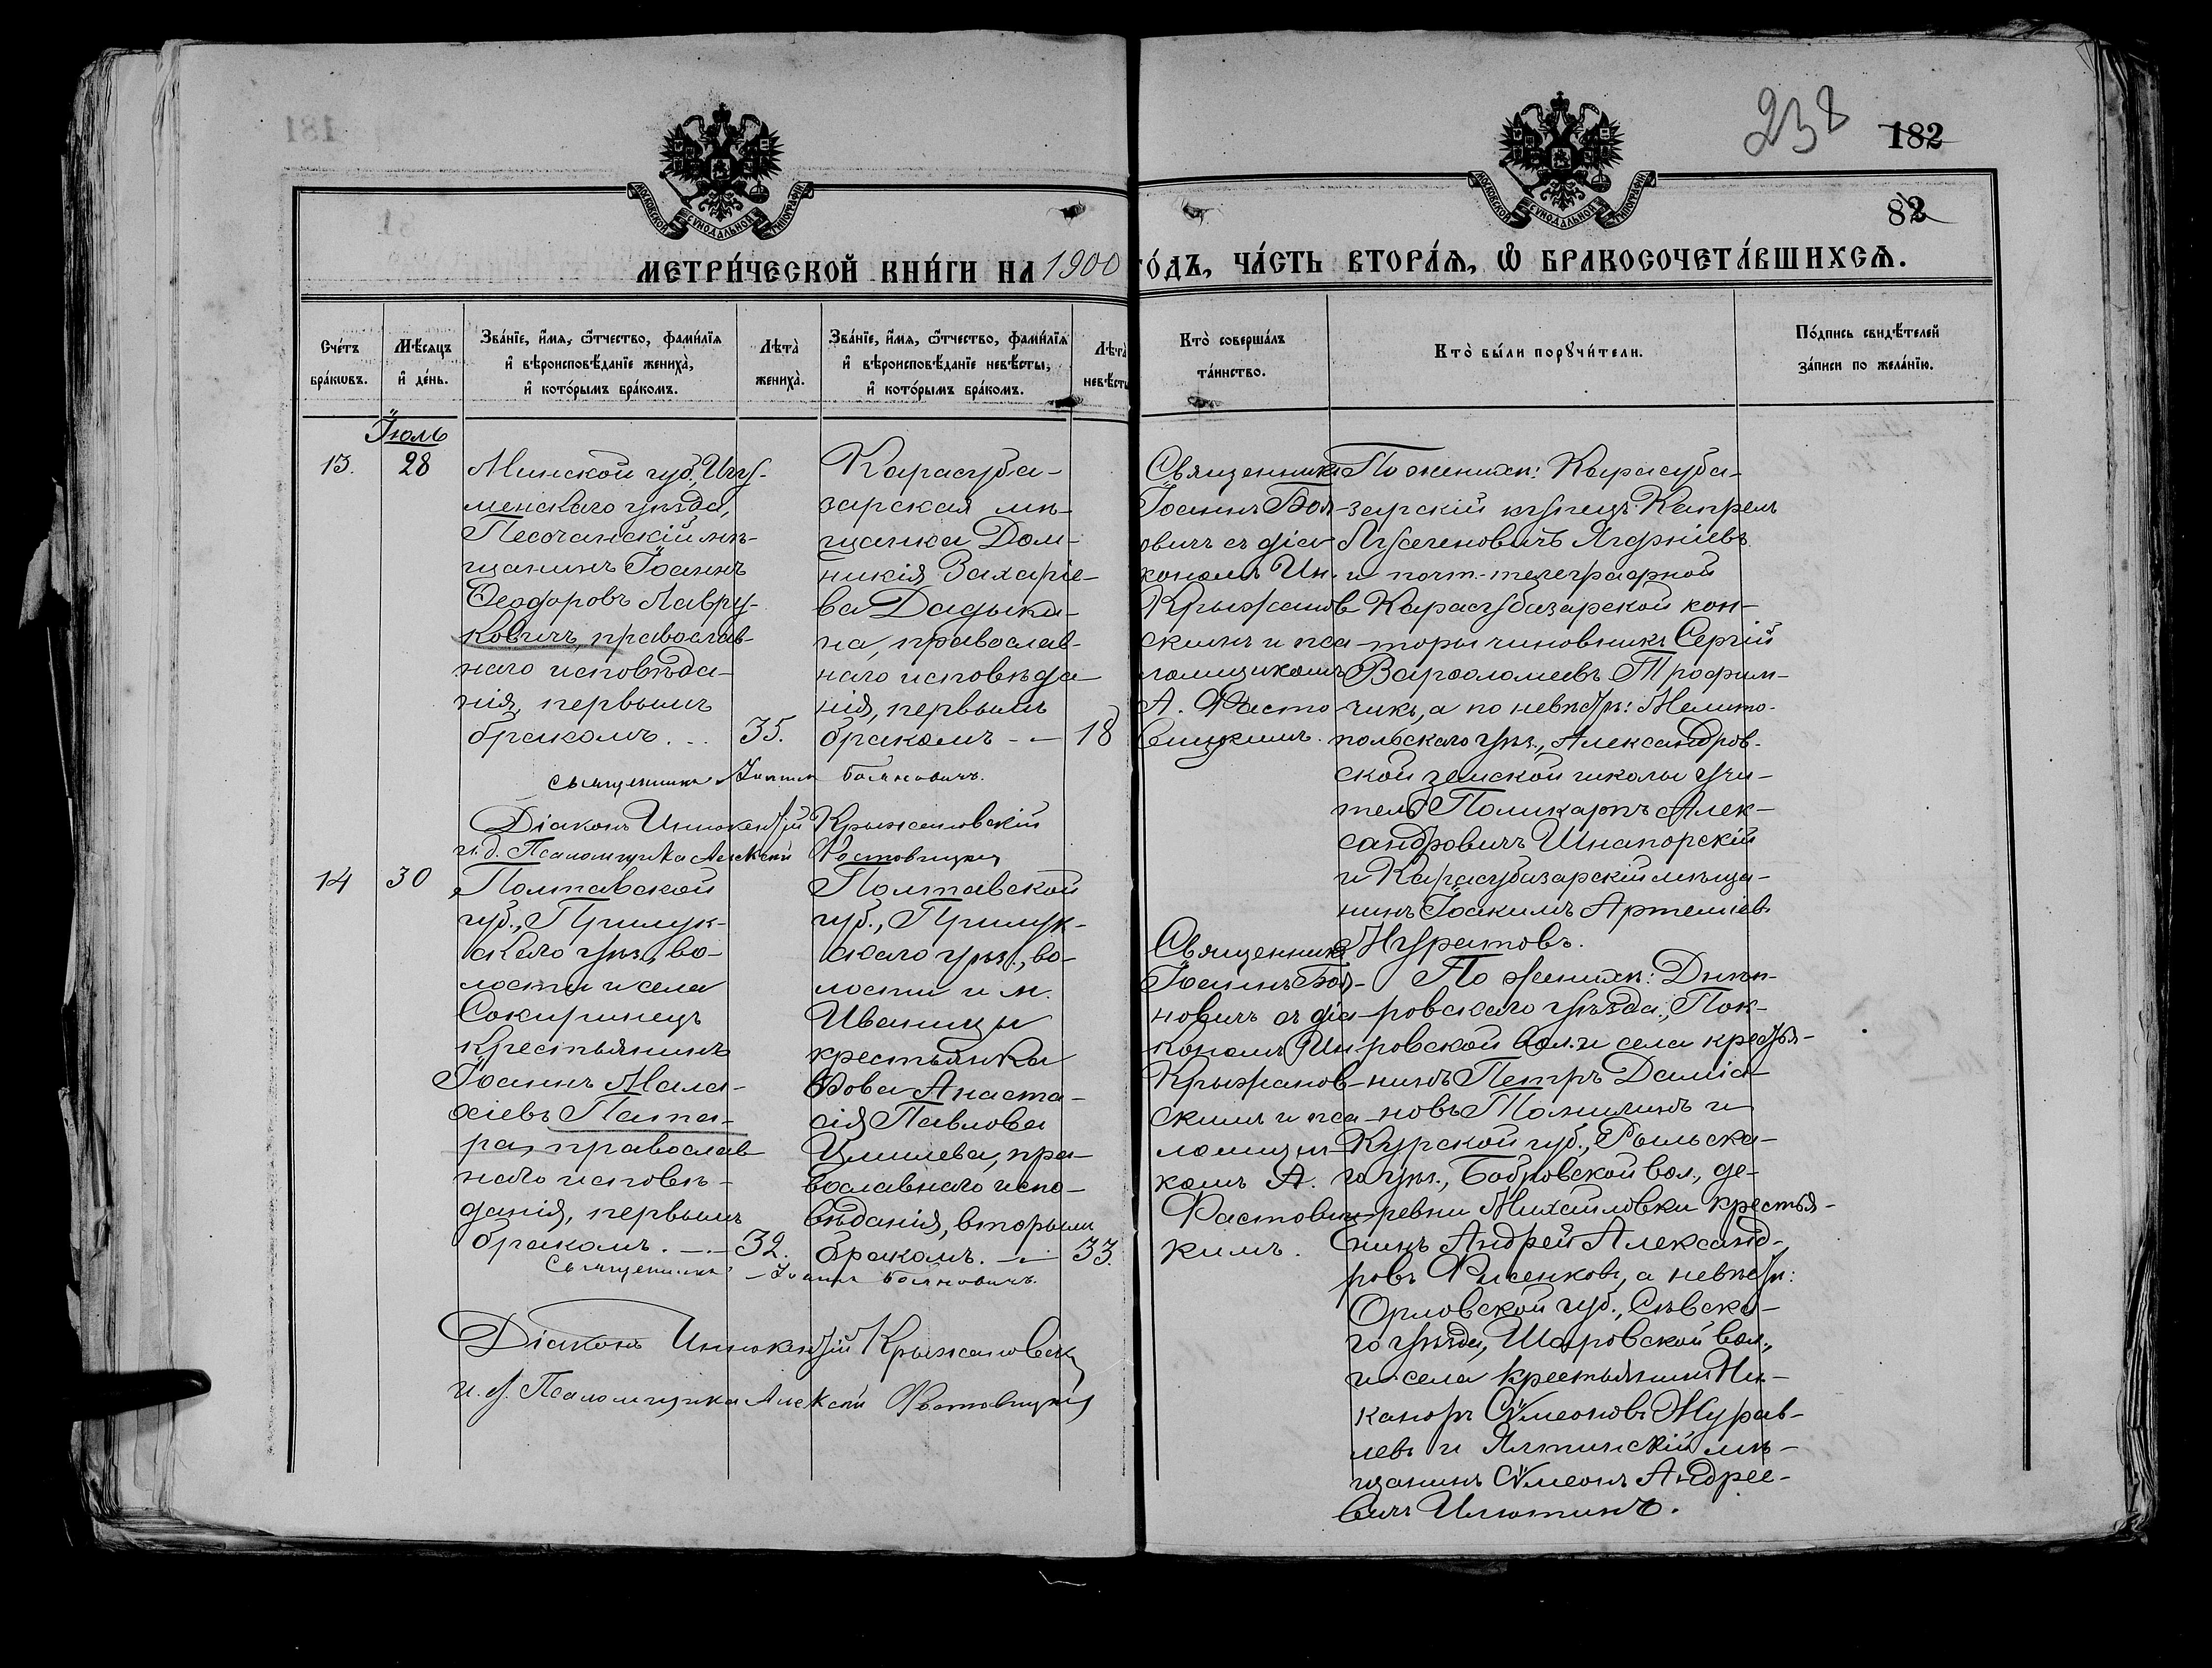 238
182
82
МОСКОВСКОЙ СѴНОДАЛЬНОЙ ТИПОГРАФІИ
МОСКОВСКОЙ СѴНОДАЛЬНОЙ ТИПОГРАФІИ
МЕТРИ́ЧЕСКОЙ КНИ́ГИ НА 1900 ГО́ДЪ, ЧА́СТЬ ВТОРА́Ѧ, Ѡ҆ БРАКОСОЧЕТА́ВШИХСѦ.
Сче́тъ
бра́кѡвъ.
Мѣ́сяцъ
и҆ де́нь.
Зва́нїе, и҆́мѧ, ѻ҆́тчество, фами́лїѧ
и҆ вѣроисповѣ́данїе жениха̀,
и҆ кото́рымъ бра́комъ.
Лѣта̀
жениха̀.
Зва́нїе, и҆́мѧ, ѻ҆́тчество, фами́лїѧ
и҆ вѣроисповѣ́данїе невѣ́сты,
и҆ кото́рымъ бра́комъ.
Лѣта̀
невѣ́сты
Кто̀ соверша́лъ
та́инство.
Кто̀ бы́ли порꙋчи́тели.
По́дпись свидѣ́телей
за́писи по жела́нїю.
Іюль
13.
28
Минской губ., Игу-
менскаго уѣзда,
Песочанскій мѣ-
щанинъ Іоаннъ
Ѳеодоровъ Лавру-
ковичъ, православ-
наго исповѣда-
нія, первымъ
бракомъ. . .
35.
Карасуба-
зарская мѣ-
щанка Дом-
никія Захаріе-
ва Дадыки-
на, православ-
наго исповѣда-
нія, первымъ
бракомъ - -
18
Священникъ
Іоаннъ Боя-
новичъ съ діа-
кономъ Ин.
Крыжанов-
скимъ и пса-
ломщикомъ
А. Фасто-
вицкимъ.
По женихѣ: Карасуба-
зарскій купецъ Капрелъ
Агусеновичъ
и почт.-телеграфной
Карасубазарской кон-
торы чиновникъ Сергій
Варѳоломеевъ Трофим-
чикъ, а по невѣстѣ: Мелито-
польскаго уѣз., Александров-
ской земской школы учи-
тель Поликарпъ Алек-
сандровичъ Шнапорскій
и Карасубазарскій мѣща-
нинъ Іоакимъ Артеміевъ
Муратовъ.
Священникъ Іоаннъ Бояновичъ.
Діаконъ Иннокентій Крыжановскій
и. д. Псаломщика Алексѣй Фастовицкій
14
30
Полтавской
губ., Прилук-
скаго уѣз., во-
лости и села
Сокиринецъ
крестьянинъ
Іоаннъ Мала-
хіевъ Пата-
ра, православ-
наго исповѣ-
данія, первымъ
бракомъ. - . -
32.
Полтавской
губ., Прилук-
скаго уѣз., во-
лости и м.
Иваницы
крестьянка
вдова Анаста-
сія Павлова
Цмилева, пра-
вославнаго испо-
вѣданія, вторымъ
бракомъ. - . -
33.
Священникъ
Іоаннъ Боя-
новичъ съ діа-
кономъ Ин.
Крыжанов-
скимъ и пса-
ломщи-
комъ А.
Фастовиц-
кимъ.
По женихѣ: Днѣп-
ровскаго уѣзда, Пок-
ровской вол. и села крестья-
нинъ Петръ Даміа-
новъ и
Курской губ., Рыльска-
го уѣз., Бобровской вол., де-
ревни Михайловки крестья-
нинъ Андрей Александ-
ровъ Фисенковъ, а невѣстѣ:
Орловской губ., Сѣвска-
го уѣзда, Шаровской вол.,
и села крестьянинъ Ни-
каноръ Сѵмеоновъ Журав-
левъ и Ялтинскій мѣ-
щанинъ Сѵмеонъ Андрее-
вичъ Илютинъ.
Священникъ Іоаннъ Бояновичъ.
Діаконъ Иннокентій Крыжановскій
и. д. Псаломщика Алексѣй Фастовицкій